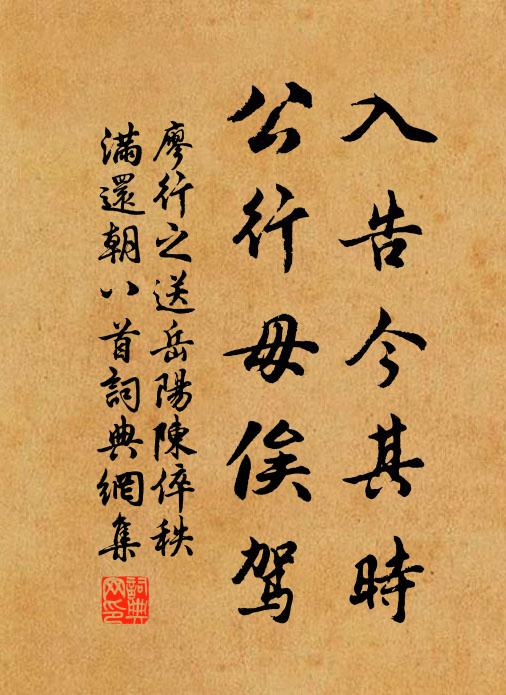 入告今其時
公行毋俟駕
廖行之送岳陽陳倅秩
滿還朝八首詞典網集
詞典
網印